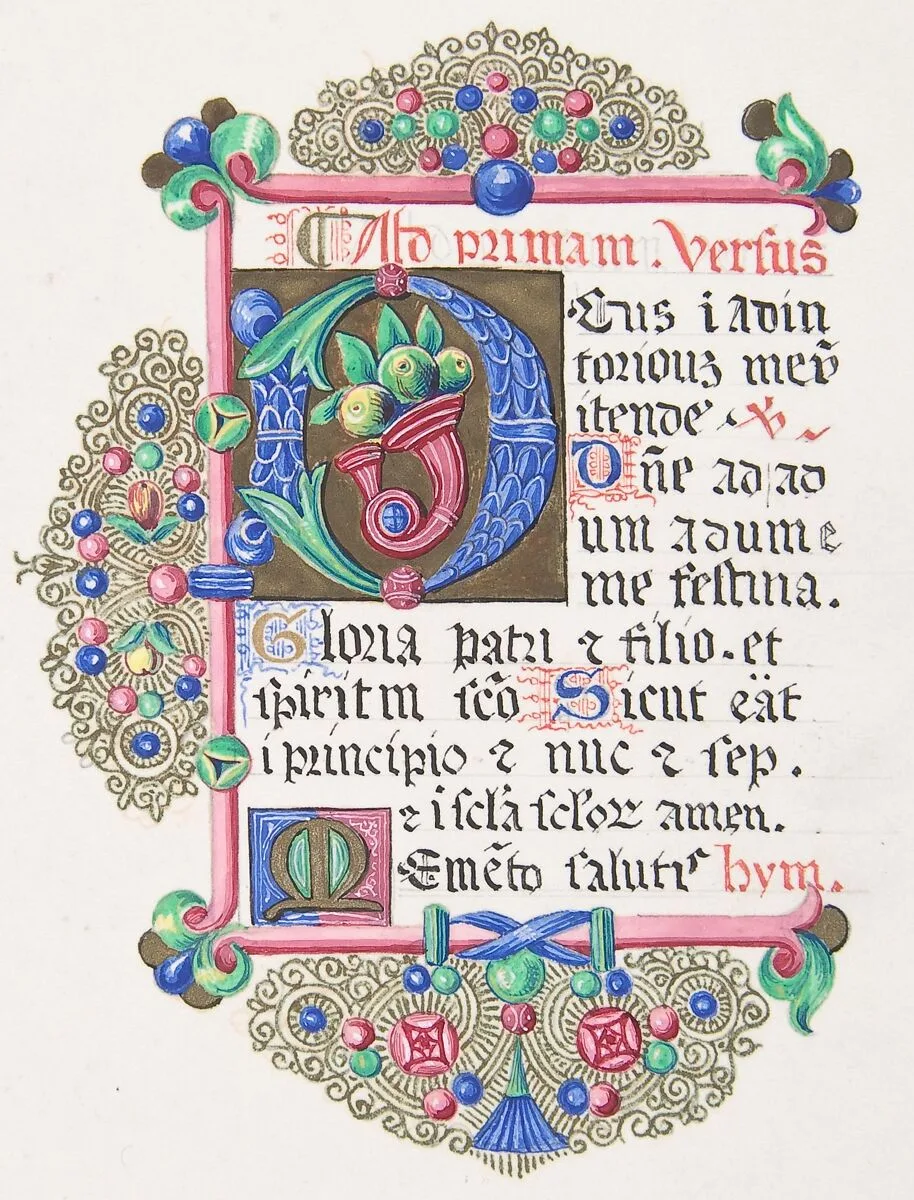 Ad primam. Versus
Deus i adiu
toriouʒ meu̅
itende. ℟.
Dn̄e ad ad
um adume
me festina.
Gloria patri ⁊ filio. et
sp̄iritm sc̄o Sicut eāt
i principio ⁊ nuc ⁊ sep.
⁊ i scl̄a scl̄oꝝ amen.
Memēto salutis hym.